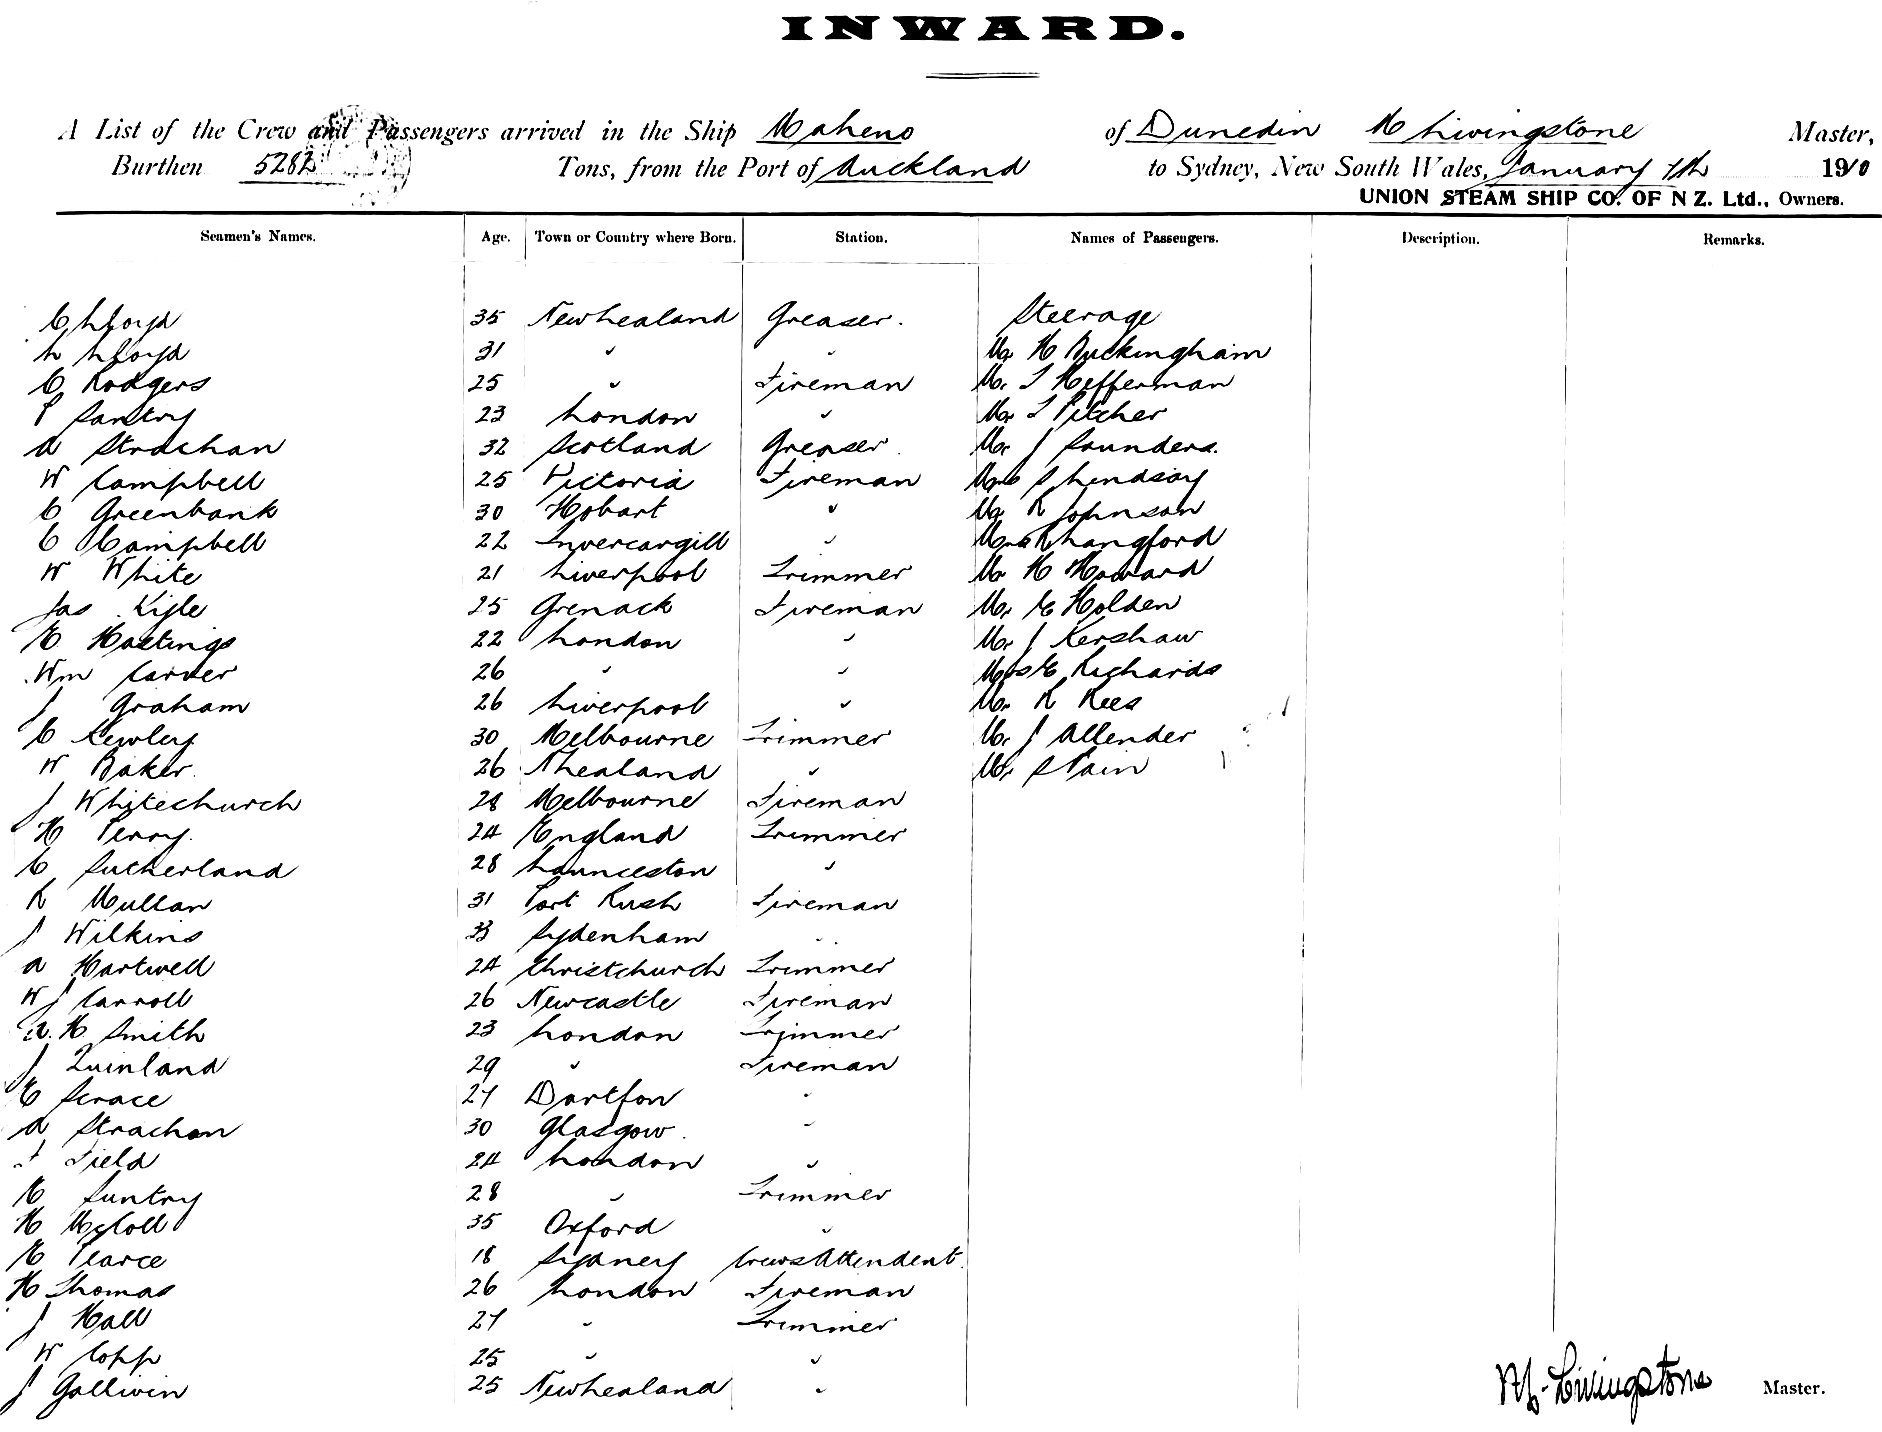 INWARD.
A List of the Crew and Passengers arrived in the Ship Maheno of Dunedin H Livingstone Master,
Burthen 5282 Tons, from the Port of Auckland to Sydney, New South Wales, January 7th 1910
UNION STEAM SHIP CO. OF N Z. Ltd., Owners.
Seamen's Names. Age. Town or Country where Born. Station. Names of Passengers. Description. Remarks.
C Lloyd 35 New Zealand Greaser. Steerage
L Lloyd 31 " " Mr H Buckingham
C Rodgers 25 " Fireman Mr T Hefferman
P Santry 23 London " Mr T Pitcher
A Strachan 32 Scotland Greaser. Mr J Saunders.
W Campbell 25 Victoria Fireman Mrs S Lindsay
C Greenbank 30 Hobart " Mr R Johnson
C Campbell 22 Invercargill " Langford
W White 21 Liverpool Trimmer Mr H Howard
Jas Kyle 25 Grenack Fireman Mr E Holden
E Hastings 22 London " Mr J Kershaw
Wm Carver 26 " " Mrs E Richards
J Graham 26 Liverpool " Mr R Rees
C Kewley 30 Melbourne Trimmer Mr J Allender
W Baker. 26 N Zealand " Mr S Pain
J Whitechurch 28 Melbourne Fireman
H Perry. 24 England Trimmer
C Sutherland 28 Launceston "
R Mullan 31 Port Rush Fireman
J Wilkins 33 Sydenham "
A Hartwell 24 Christchurch Trimmer
W J Carroll 26 Newcastle Fireman
A. H Smith 23 London Trimmer
J Quinland 29 " Fireman
E Scrace 27 Dartfon "
A Strachan 30 Glasgow. "
F Field 24 London "
E Suntry 28 " Trimmer
H McColl 35 Oxford "
E Pearce 18 Sydney Crews Attendent.
H Thomas 26 London Fireman
J Hall 27 " Trimmer
W Copp 25 " "
J Gallivin 25 New Zealand "
Livingstone Master.